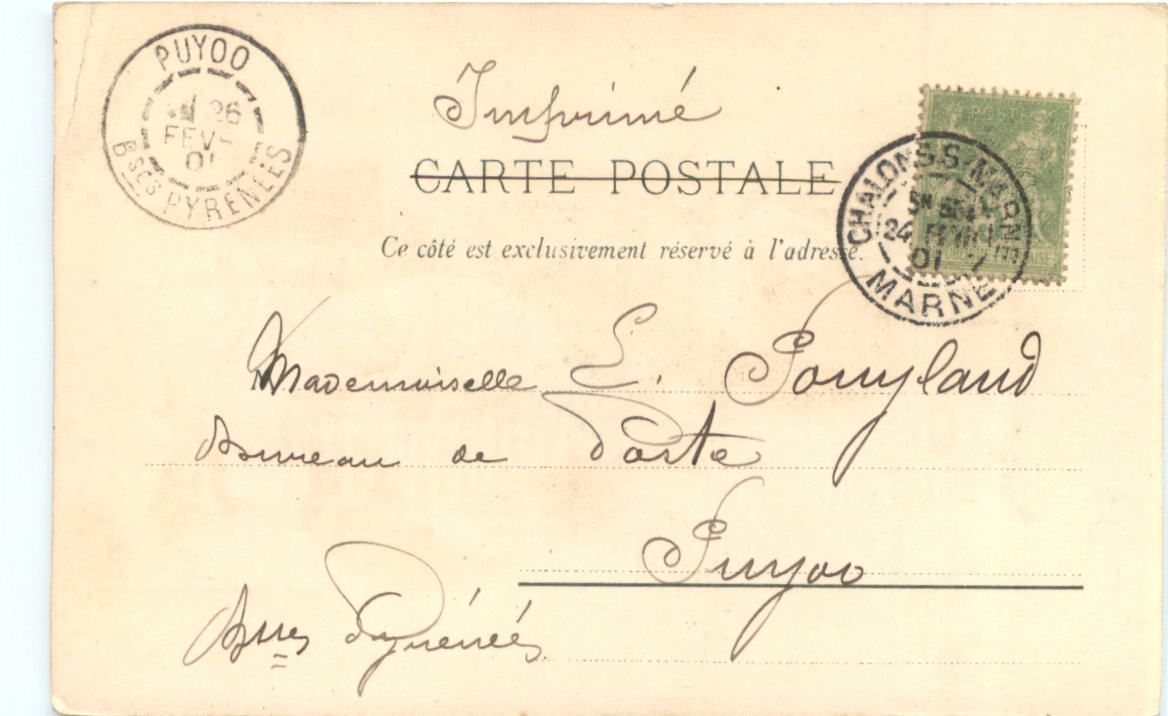 PUYOO
26
FEVR
01
Bses PYRENEES
Imprimé
CARTE POSTALE
Ce côté est exclusivement réservé à l'adresse.
POSTE
CHALONS-S-MARNE
24 FEVR
01
MARNE
Mademoiselle E. Pouyland
Bureau de Poste
Puyoo
Bsses Pyrénées